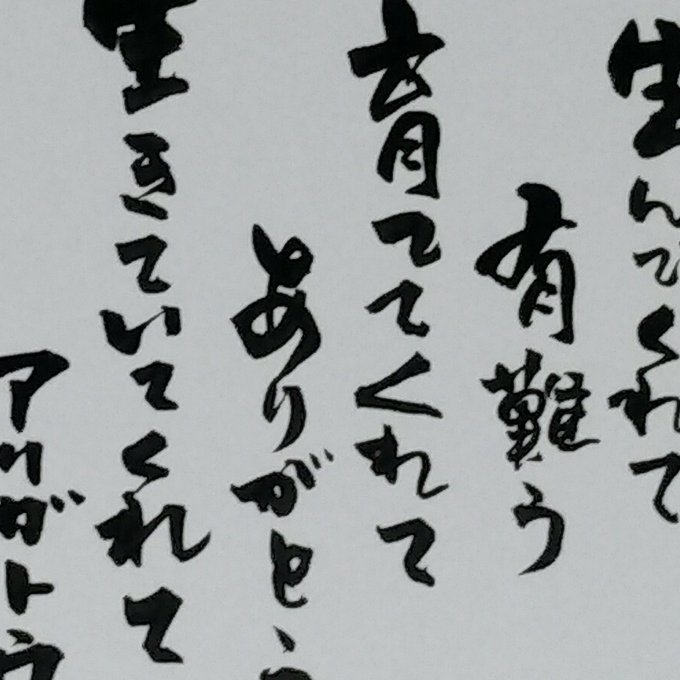 生んでくれて
有難う
育ててくれて
ありがとう
生きていてくれて
アリガトウ